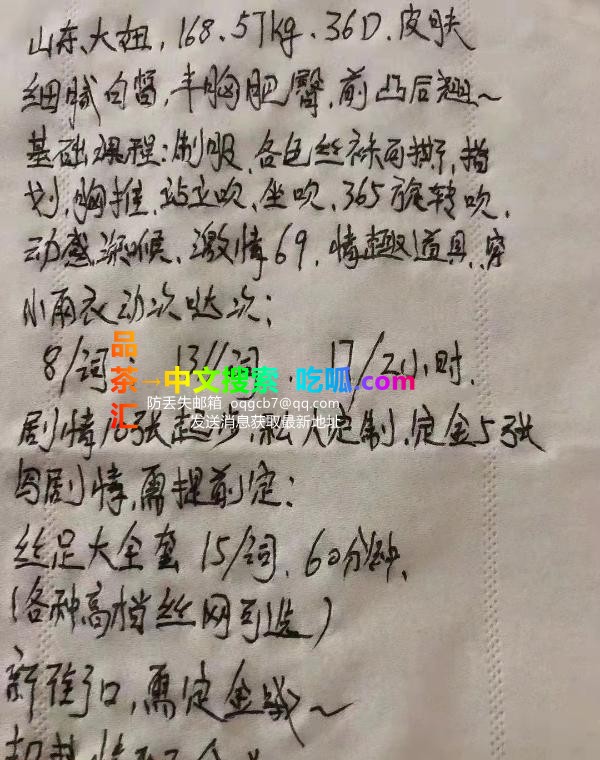 山东大妞，168.57kg.36D.皮肤
细腻白皙，丰胸肥臀，前凸后翘~
基础课程：制服、各色丝袜可撕、指
划，胸推、站立吹、坐吹、365旋转吹、
动感深喉、激情69，情趣道具，穿
小雨衣动次哒次：
8/词、13/2词、17/2小时.
品茶汇→中文搜索 吃呱.com
防丢失邮箱 oqgcb7@qq.com
发送消息获取最新地址
剧情18张起步，私人定制，定金5张
与剧情，需提前定：
丝足大全套 15/词、60分钟、
（各种高档丝网可选）
新街口，需定金哦~